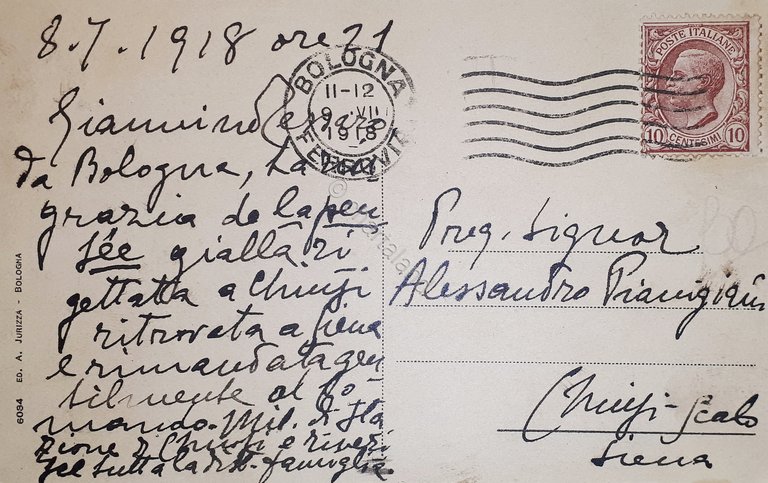 8.7.1918 ore 21
BOLOGNA
11-12
9 VII
1918
FERROVIA
POSTE ITALIANE
10 CENTESIMI 10
Giannino
da Bologna, La
grazia de la pen
sée gialla ri
gettata a Chiusi
ritrovata a Siena
e rimandata gen
tilmente al Co-
mando. Mil. di Sta
zione di Chiusi e riveri
sce tutta la famiglia
Preg. Signor
Alessandro Pianigiani
Chiusi-Scalo
Siena
6034 ED. A. JURIZZA - BOLOGNA